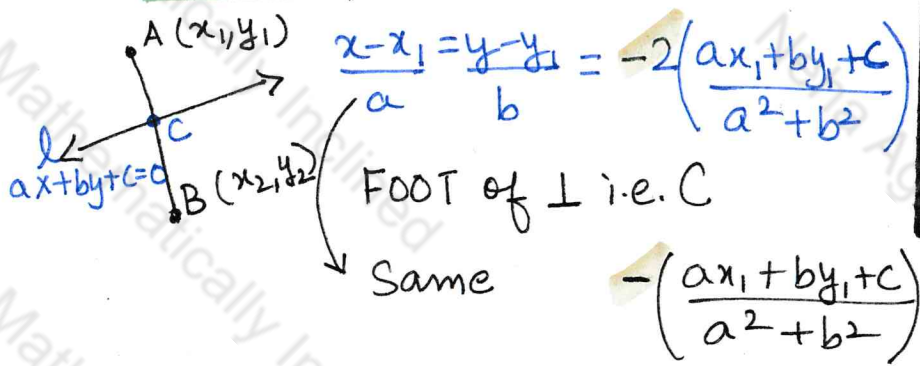 A (x₁,y₁)
C
l
ax+by+c=0
B (x₂,y₂)
x-x₁/a = y-y₁/b = -2(ax₁+by₁+c/a²+b²)
FOOT of ⊥ i.e. C
Same -(ax₁+by₁+c/a²+b²)
Mathematically Inclined
Neha Ag